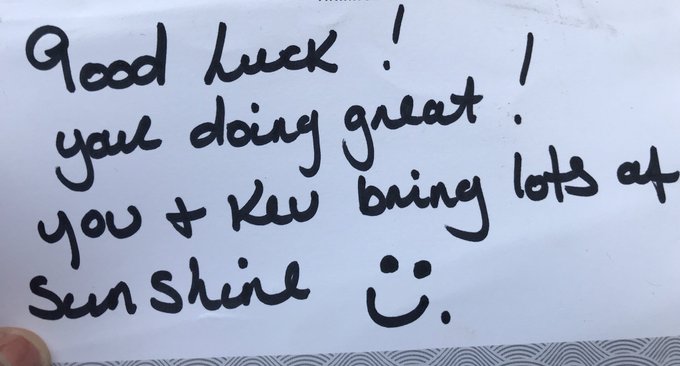 Good Luck!
your doing great!
you + Kev bring lots of
sunshine